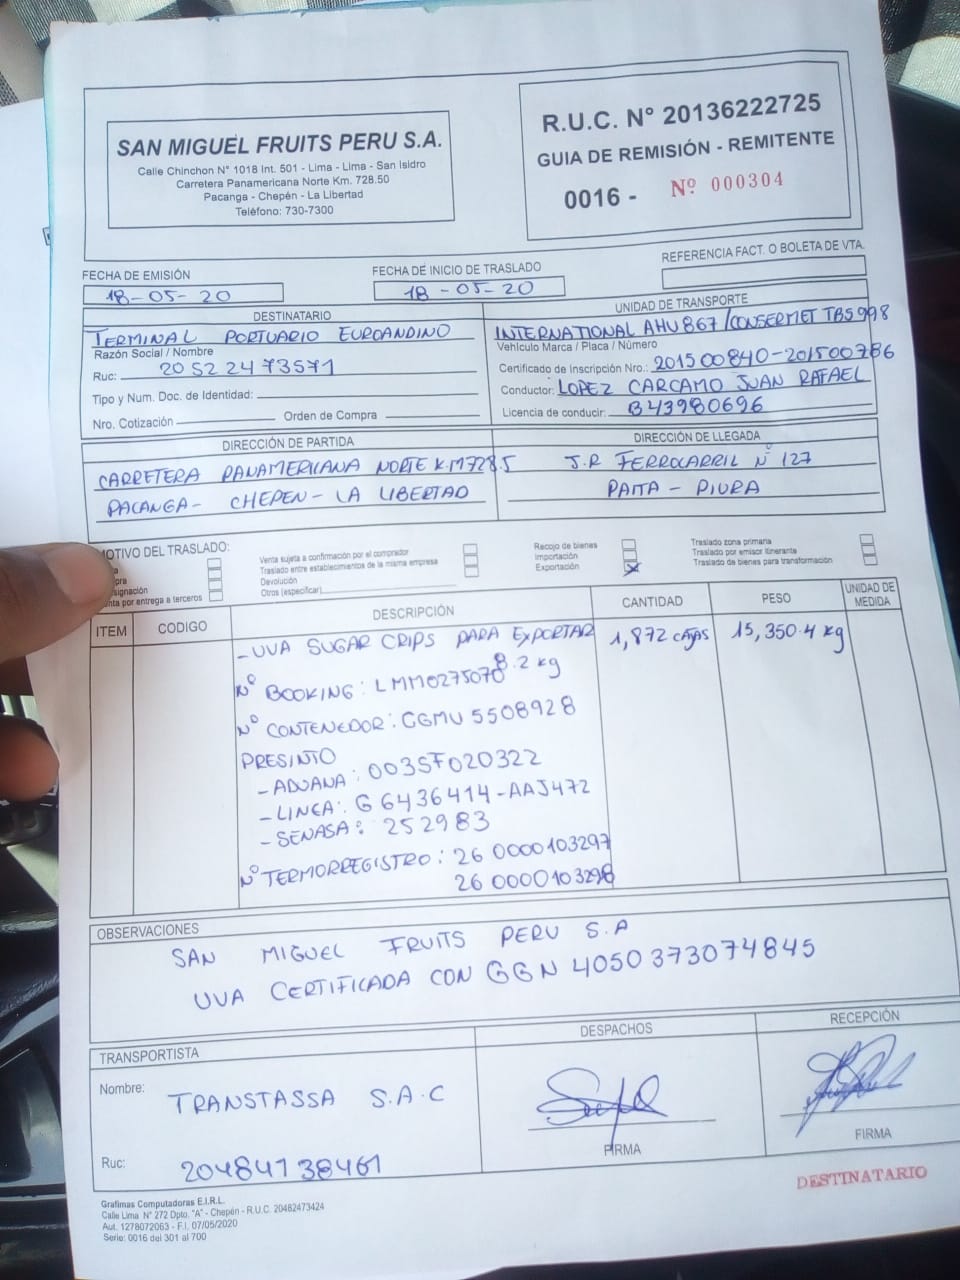 SAN MIGUEL FRUITS PERU S.A.
Calle Chinchon N° 1018 Int. 501 - Lima - Lima - San Isidro
Carretera Panamericana Norte Km. 728.50
Pacanga - Chepén - La Libertad
Teléfono: 730-7300
R.U.C. N° 20136222725
GUIA DE REMISIÓN - REMITENTE
0016 - Nº 000304
FECHA DE EMISIÓN
18-05-20
FECHA DE INICIO DE TRASLADO
18-05-20
REFERENCIA FACT. O BOLETA DE VTA.
DESTINATARIO
TERMINAL PORTUARIO EUROANDINO
Razón Social / Nombre
Ruc: 20522473571
Tipo y Num. Doc. de Identidad:
Nro. Cotización Orden de Compra
UNIDAD DE TRANSPORTE
INTERNATIONAL AHU867/CONSERMET TBS998
Vehículo Marca / Placa / Número
Certificado de Inscripción Nro.: 201500840-201500786
Conductor: LOPEZ CARCAMO JUAN RAFAEL
Licencia de conducir: B43980696
DIRECCIÓN DE PARTIDA
CARRETERA PANAMERICANA NORTE K.M728.5
PACANGA- CHEPEN- LA LIBERTAD
DIRECCIÓN DE LLEGADA
J.R FERROCARRIL Nº 127
PAITA - PIURA
MOTIVO DEL TRASLADO:
Venta sujeta a confirmación por el comprador
Traslado entre establecimientos de la misma empresa
Devolución
Otros (especificar)
Recojo de bienes
Importación
Exportación X
Traslado zona primaria
Traslado por emisor itinerante
Traslado de bienes para transformación
por entrega a terceros
ITEM CODIGO DESCRIPCIÓN CANTIDAD PESO UNIDAD DE MEDIDA
- UVA SUGAR CRIPS PARA EXPORTAR 1,872 CAJAS 15,350.4 kg
8.2 kg
Nº BOOKING: LMM0275078
Nº CONTENEDOR: CGMU 5508928
PRESINTO
- ADUANA: 003SF020322
- LINEA: G6436414-AAJ472
- SENASA: 252983
Nº TERMORREGISTRO: 26 0000103297
26 0000103298
OBSERVACIONES
SAN MIGUEL FRUITS PERU S.A
UVA CERTIFICADA CON GGN 4050373074845
TRANSPORTISTA
Nombre: TRANSTASSA S.A.C
Ruc: 20484138461
DESPACHOS
FIRMA
RECEPCIÓN
FIRMA
DESTINATARIO
Grafimas Computadoras E.I.R.L.
Calle Lima N° 272 Dpto. "A" - Chepén - R.U.C. 20482473424
Aut. 1278072063 - F.I. 07/05/2020
Serie: 0016 del 301 al 700